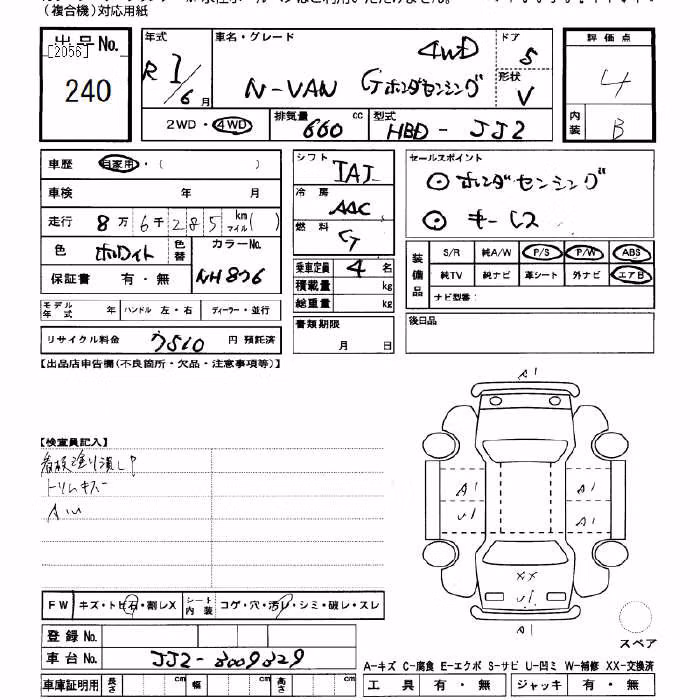 （複合機）対応用紙
出品No.
[2056]
240
年式 R1/6月
車名・グレード
N-VAN Gホンダセンシング 4WD
ドア 5
形状 V
2WD・4WD
排気量 660 cc
型式 HBD-JJ2
評価点 4
内装 B
車歴 自家用・（ ）
車検 年 月
走行 8万6千285 km マイル（ ）
色 ホワイト 色替 カラーNo. NH876
保証書 有・無
モデル年式 年 ハンドル 左・右 ディーラー・並行
リサイクル料金 7510 円 預託済
シフト IAT
冷房 AAC
燃料 G
乗車定員 4名
積載量 kg
総重量 kg
書類期限 月 日
セールスポイント
⊙ホンダセンシング
⊙キーレス
装備品 S/R 純A/W P/S P/W ABS
純TV 純ナビ 革シート 外ナビ エアB
ナビ型番：
後日品
【出品店申告欄(不良箇所・欠品・注意事項等)】
【検査員記入】
看板塗り潰し
トリムキズ
AW
A1
A1
U1
A1
A1
XX
U1
A1
スペア
FW キズ・トビ石・割レX シート内装 コゲ・穴・汚レ・シミ・破レ・スレ
登録No.
車台No. JJ2-3009329
車庫証明用 長さ cm 幅 cm 高さ cm
A-キズ C-腐食 E-エクボ S-サビ U-凹ミ W-補修 XX-交換済
工具 有・無 ジャッキ 有・無